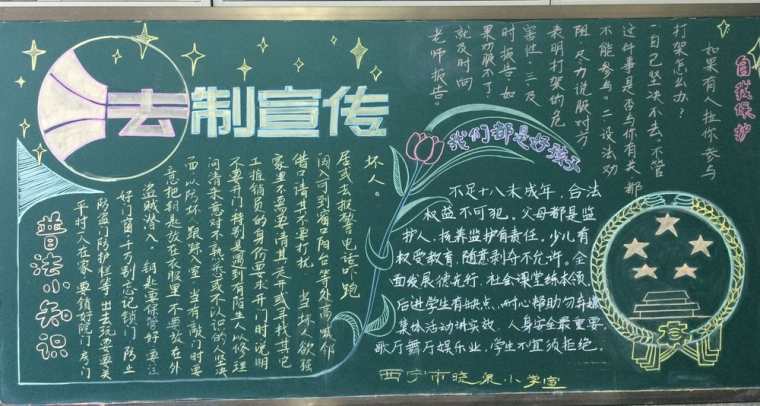 法制宣传
普法小知识
平时人在家,要锁好院门房门
防盗门防护栏等,出去玩要要关
好门窗千万别忘记锁门,防止
盗贼潜入。钥匙要保管好,要注
意把钥匙放在衣服里,不要放在外
面,以防坏跟踪入室。当有敲门时要
问清来意,对不熟悉或不认识的人坚决
不要开门,特别是遇到有陌生人以修理
工推销员的身份要求开门时,说明
家里不需要,请其走开或寻找其它
借口请其不要打扰。当坏人欲强
闯入可到窗口阳台等处高喊邻
居或去报警电话吓跑
坏人。
自我保护
如果有人拉你参与
打架怎么办?
一自己坚决不去,不管
这件事是否与你有关,都
不能参与。二设法劝
阻,尽力说服对方
表明打架的危
害性。三、及
时报告,如
果劝服不了,
就及时向
老师报告。
我们都是好孩子
不足十八未成年,合法
权益不可犯。父母都是监
护人,抚养监护有责任。少儿有
权受教育,随意剥夺不允许。全
面发展德先行,社会课堂练本领。
后进学生有缺点,耐心帮助勿弃嫌
集体活动讲实效,人身安全最重要。
歌厅舞厅娱乐业,学生不宜须拒绝。
西宁市晓泉小学宣